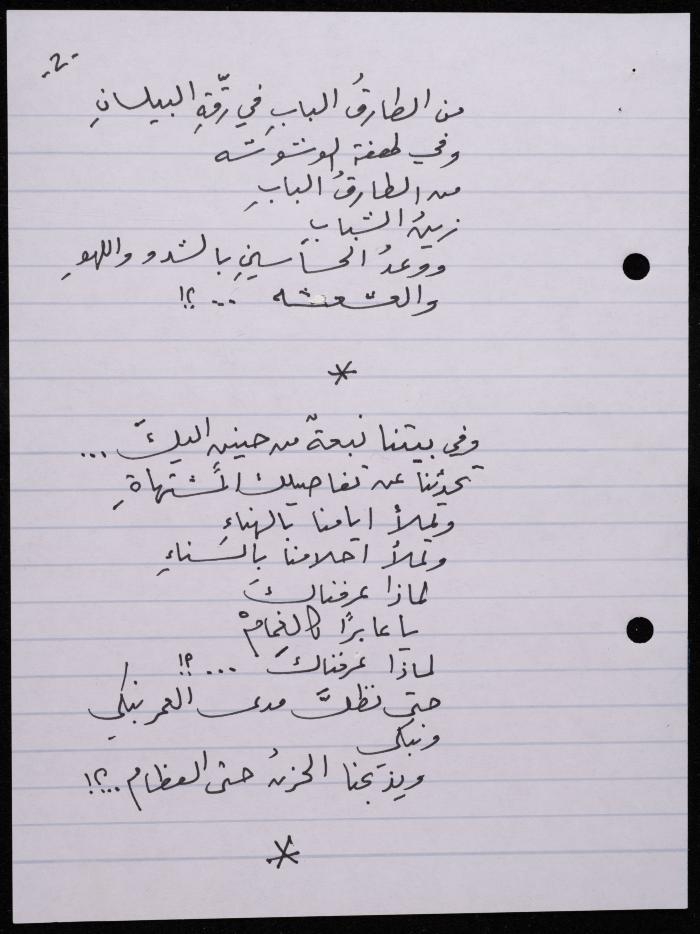 -2-
من الطارقُ البابِ في رقّةِ البيلسانِ
وفي لهفة الوشوشه
من الطارقُ البابِ
زينُ الشبابِ
ووعدُ الحساسينِ بالشدو واللهوِ
والعشعشه ... ؟!
*
وفي بيتنا نبعةٌ من حنينٍ اليكَ ...
تحدّثنا عن تفاصيلك المُشتهاةِ
وتملأ ايامنا بالهناءِ
وتملأ احلامنا بالسَناءِ
لماذا عرفناكَ
يا عابرًا كالغمامْ
لماذا عرفناك ... ؟!
حتى نظلَّ مدى العمر نبكي
ونبكي
ويذبحنا الحزنُ حتى العظام ...؟!
*